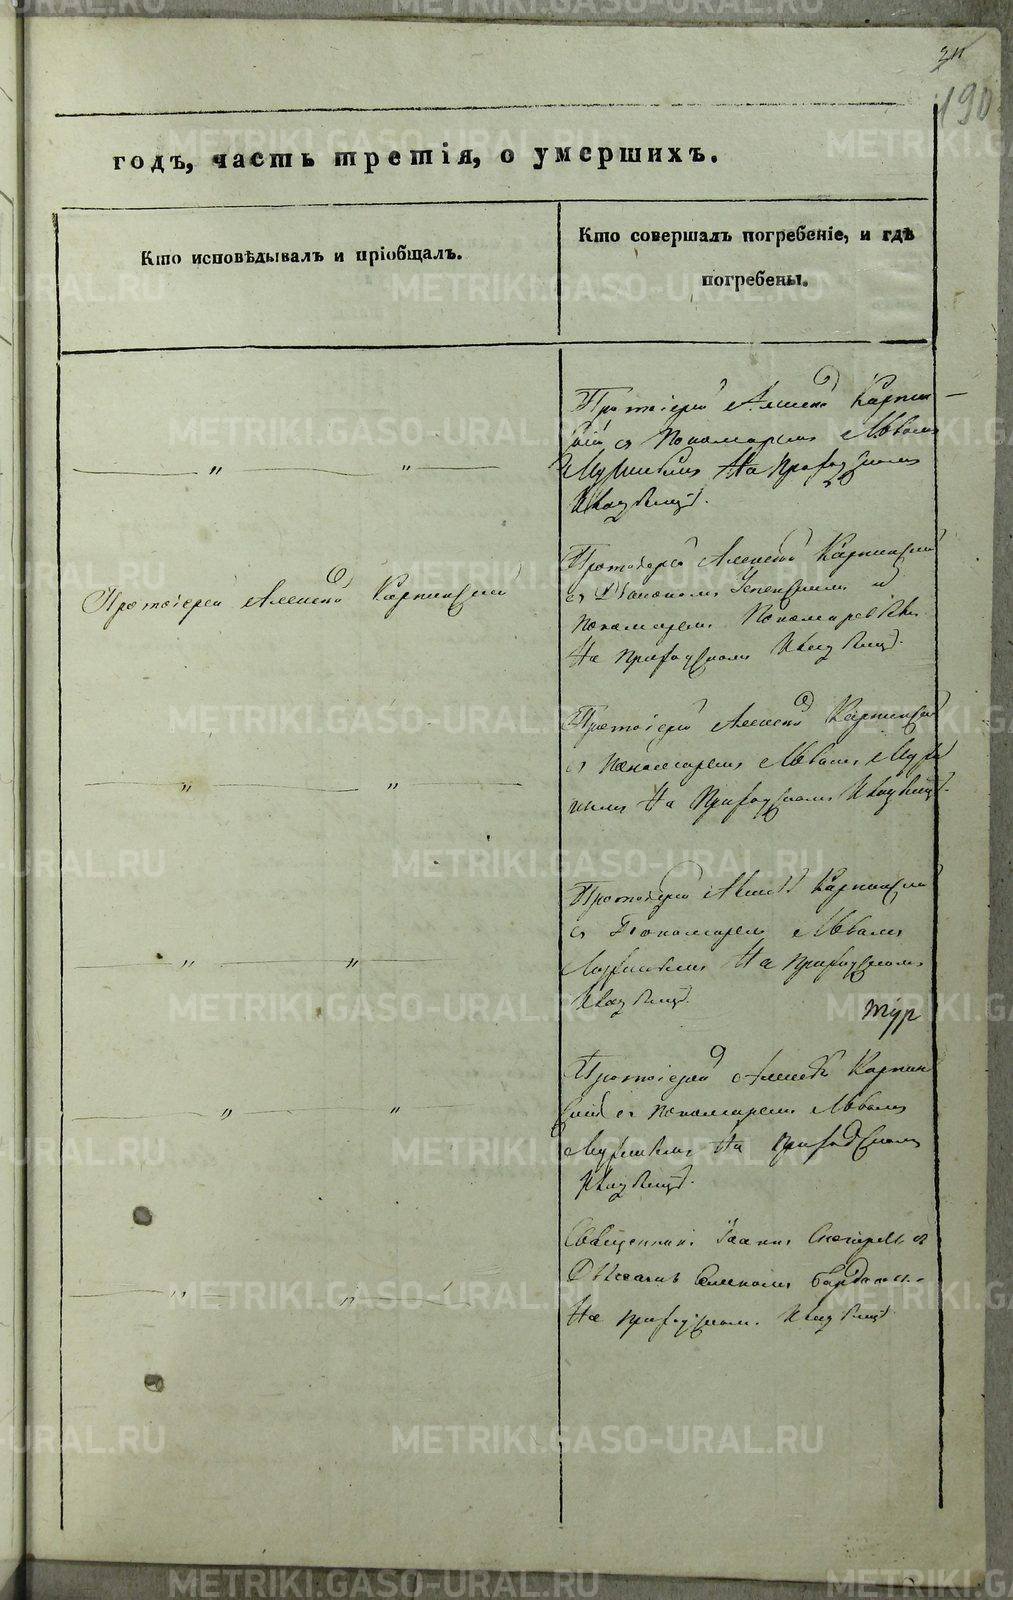 190
годъ, часть третія, о умершихъ.
Кто исповѣдывалъ и пріобщалъ.
Кто совершалъ погребеніе, и гдѣ
погребены.
Протоіерей Алексей Карпин-
скій съ Пономаремъ Львомъ
На Приходскомъ
Кладбищѣ.
Протоіерей Алексей Карпинскій
Протоіерей Алексей Карпинскій
съ Діакономъ Успенскимъ и
Пономаремъ
На Приходскомъ Кладбищѣ.
Протоіерей Алексей Карпинскій
съ Пономаремъ Львомъ
На Приходскомъ Кладбищѣ.
Протоіерей Алексей Карпинскій
съ Пономаремъ Львомъ
На Приходскомъ
Кладбищѣ.
Протоіерей Алексей Карпин
скій съ Пономаремъ Львомъ
На Приходскомъ
Кладбищѣ.
Священникъ Іоаннъ
На Приходскомъ Кладбищѣ
METRIKI.GASO-URAL.RU